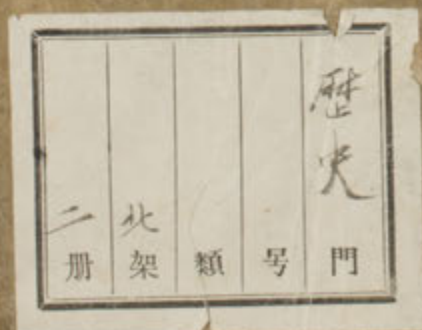 歴史門
号
類
北架
二册